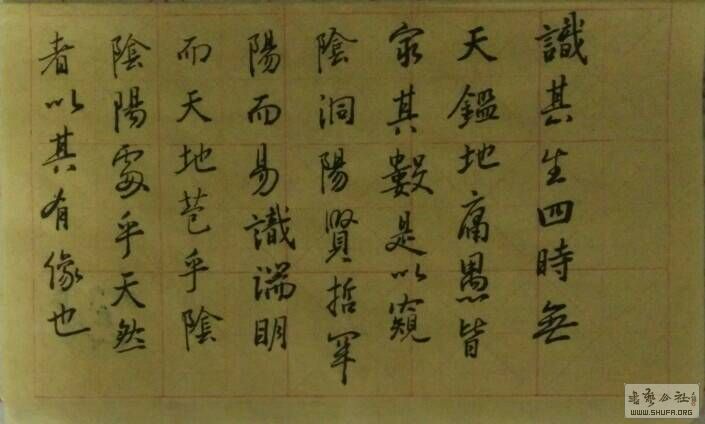 識其生四時無
天鑑地庸愚皆
其數是以窺
陰洞陽賢哲罕
陽而易識端明
而天地苞乎陰
陰陽處乎天然
者以其有像也
书艺公社
WWW.SHUFA.ORG